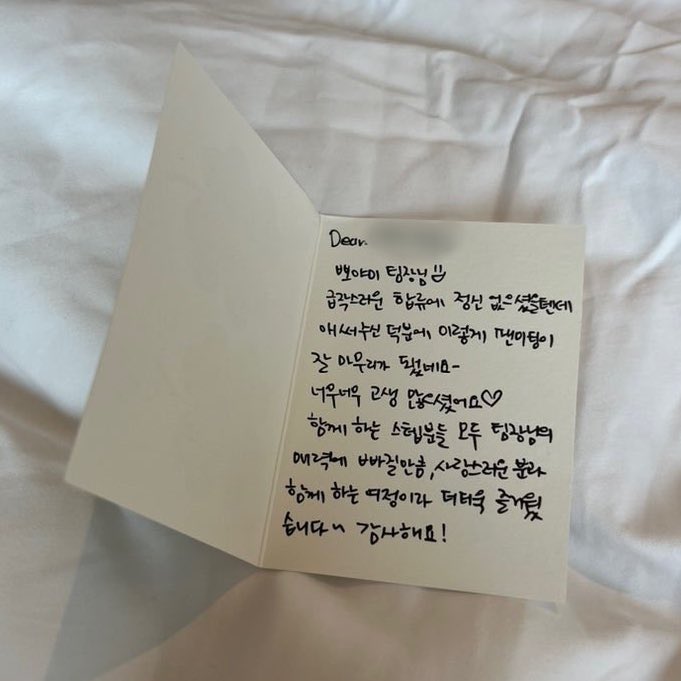 Dear.
뽀야미 팀장님
급작스러운 합류에 정신 없으셨을텐데
애써주신 덕분에 이렇게 팬미팅이
잘 마무리가 됐네요~
너무너무 고생 많으셨어요♡
함께 하는 스텝분들 모두 팀장님의
매력에 빠질만큼, 사랑스러운 분과
함께 하는 여정이라 더더욱 즐거웠
습니다~ 감사해요!